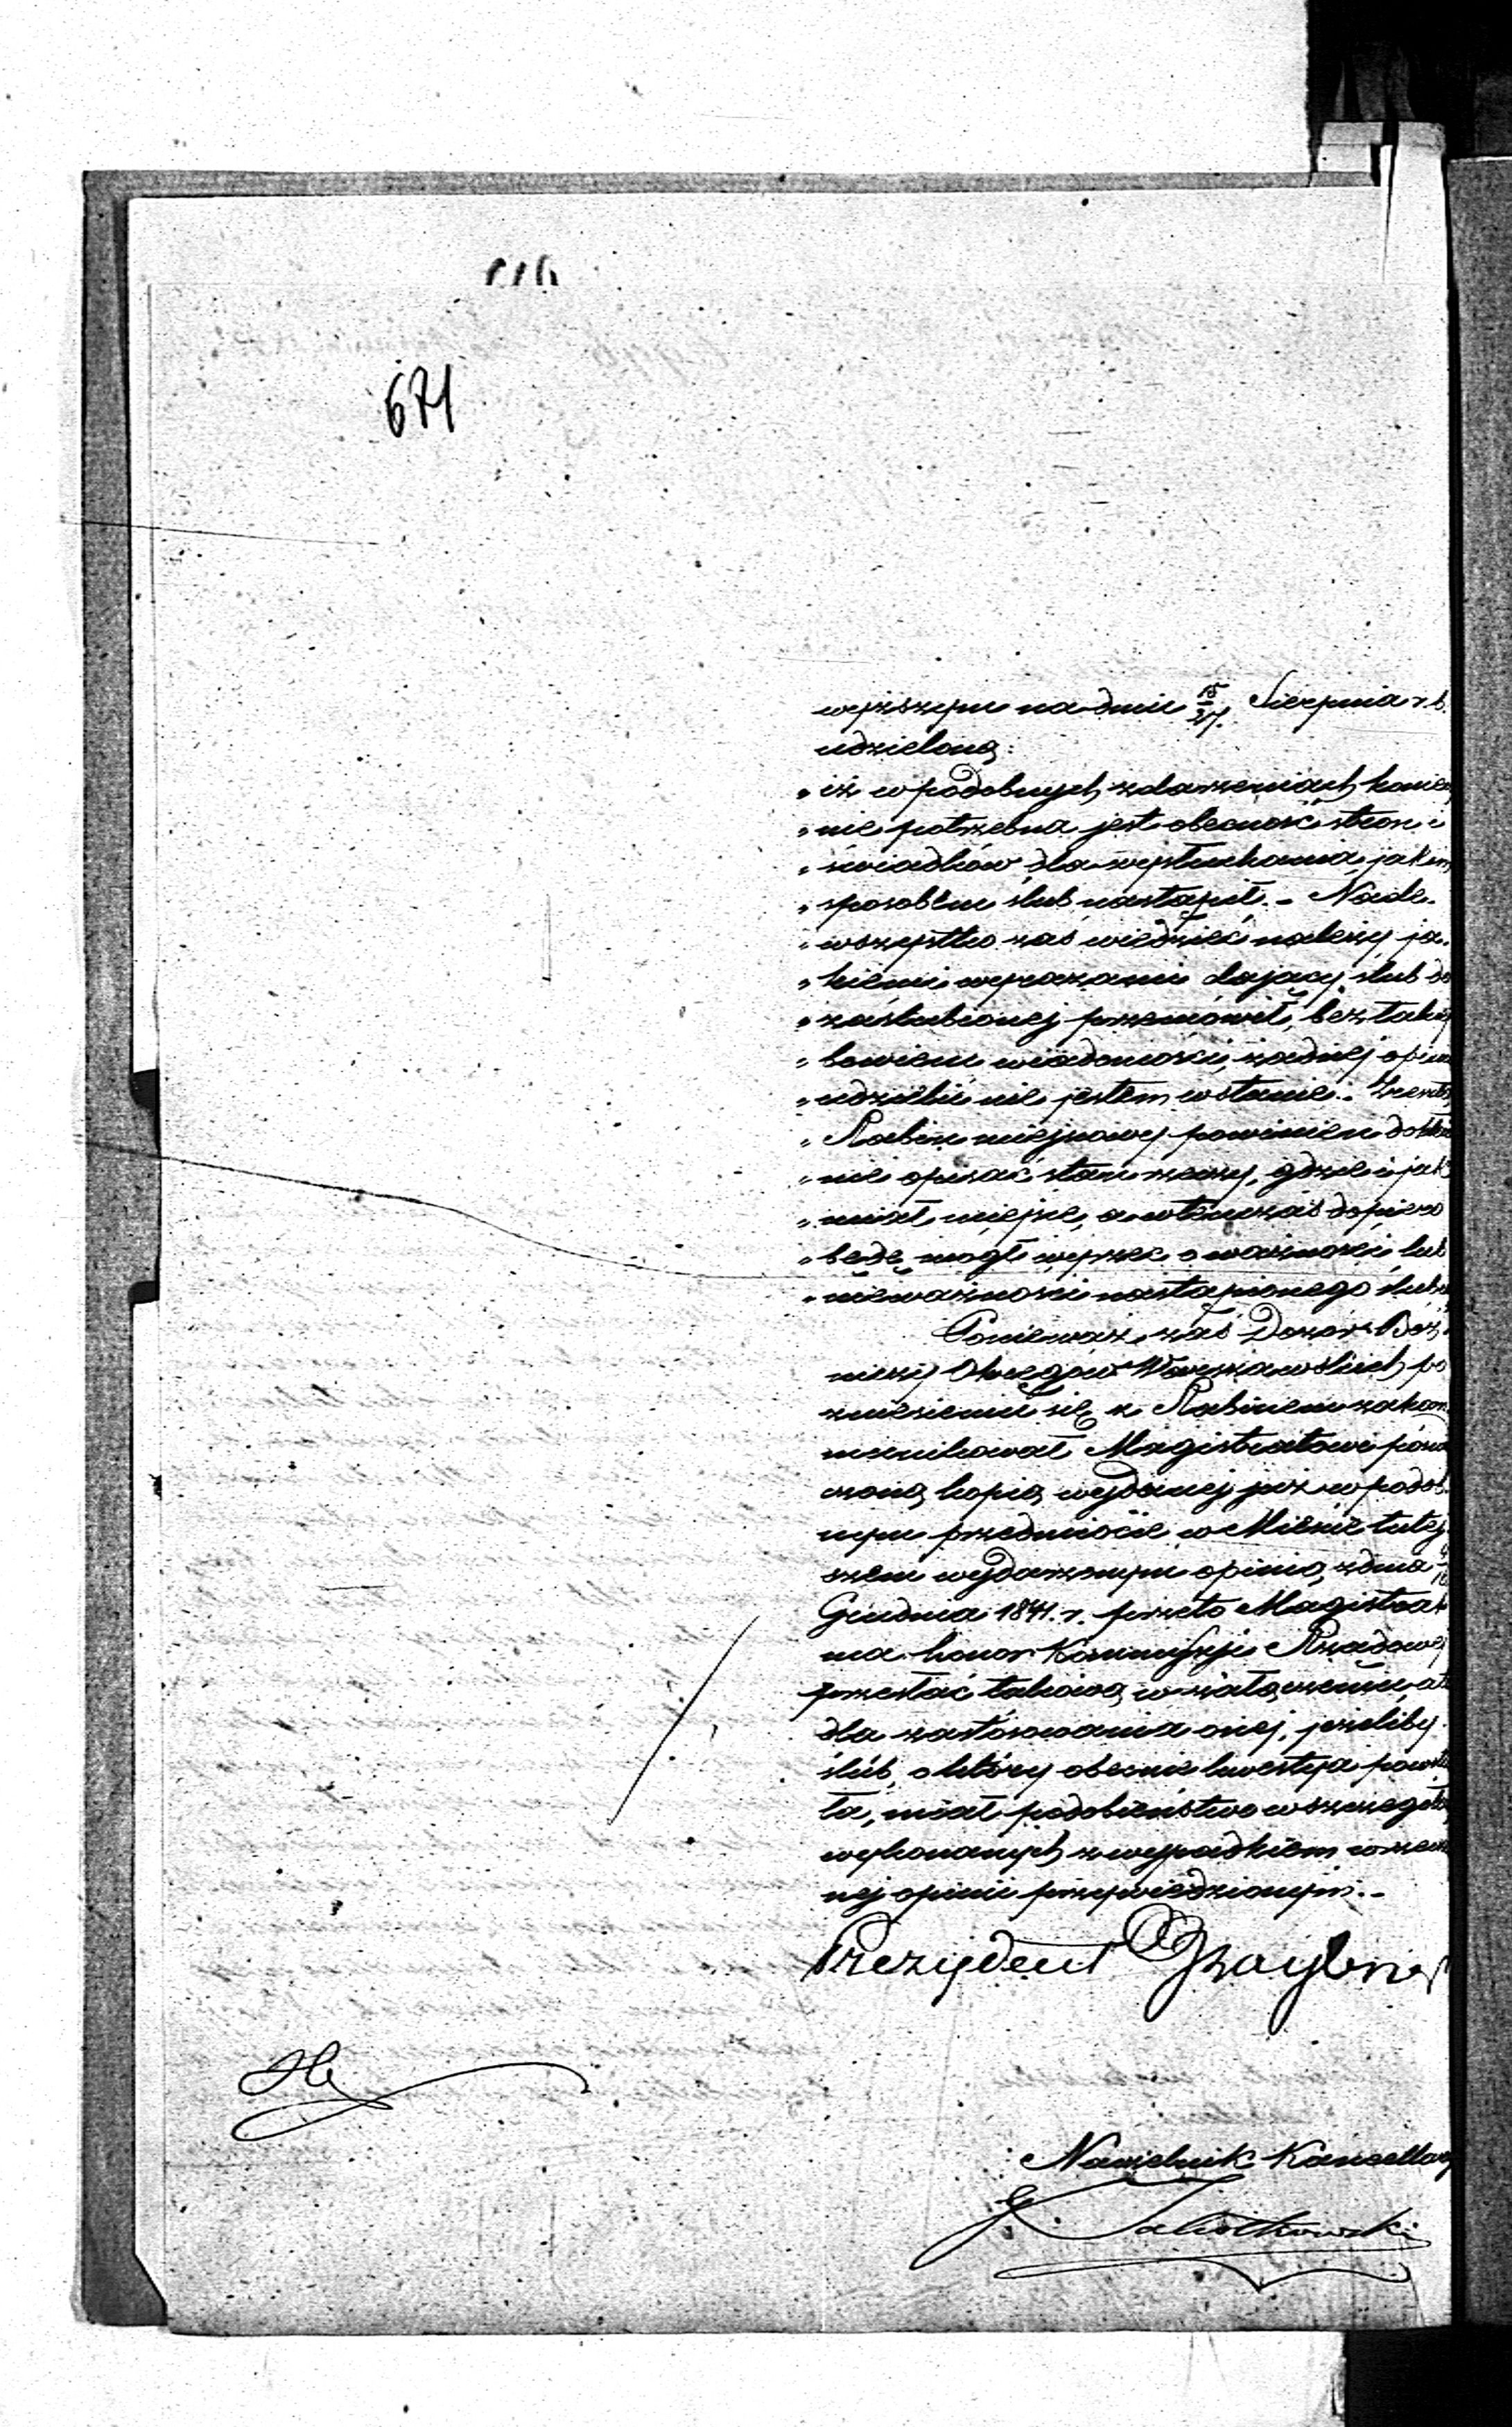 671
wyższym na dniu 15/27 Sierpnia r. b.
udzieloną:
„ iż w podobnych zdarzeniach koniecz
„ nie potrzebna jest obecność stron i
„ świadków dla wysłuchania, jakim
„ sposobem ślub nastąpił. – Nade-
„ wszystko zaś wiedzieć należy ja-
„ kiemi wyrazami dający ślub do
„ zaślubionej przemówił, bez takiej
„ bowiem wiadomości, żadnej opinii
„ udzielić nie jestem wstanie. – Zresztą
„ Rabin miejscowy powinien dokład
„ nie opisać stan rzeczy, gdzie i jak
„ miał miejsce, a wtenczas dopiero
„ będę mógł wyrzec o ważności lub
„ nieważności nastąpionego ślubu
Ponieważ zaś Dozór Boż
niczy Okręgów Warszawskich po
zniesieniu się z Rabinem zakom
munikował Magistratowi poświad
czoną kopią wydanej już w podob
nym przedmiocie w Mieście tutej
szem wydarzonym opinią, z dnia
Grudnia 1841. r. przeto Magistrat
ma honor Kommissyi Rządowej
przesłać takową w załączeniu
dla zastosowania onej, jeżeliby
ślub, o który obecnie kwestya powsta
ła, miał podobieństwo w szczegółach
wykonanych z wypadkiem w rzeczo
nej opinii przywiedzionym. –
Prezydent Graybner
Naczelnik Kancellaryi